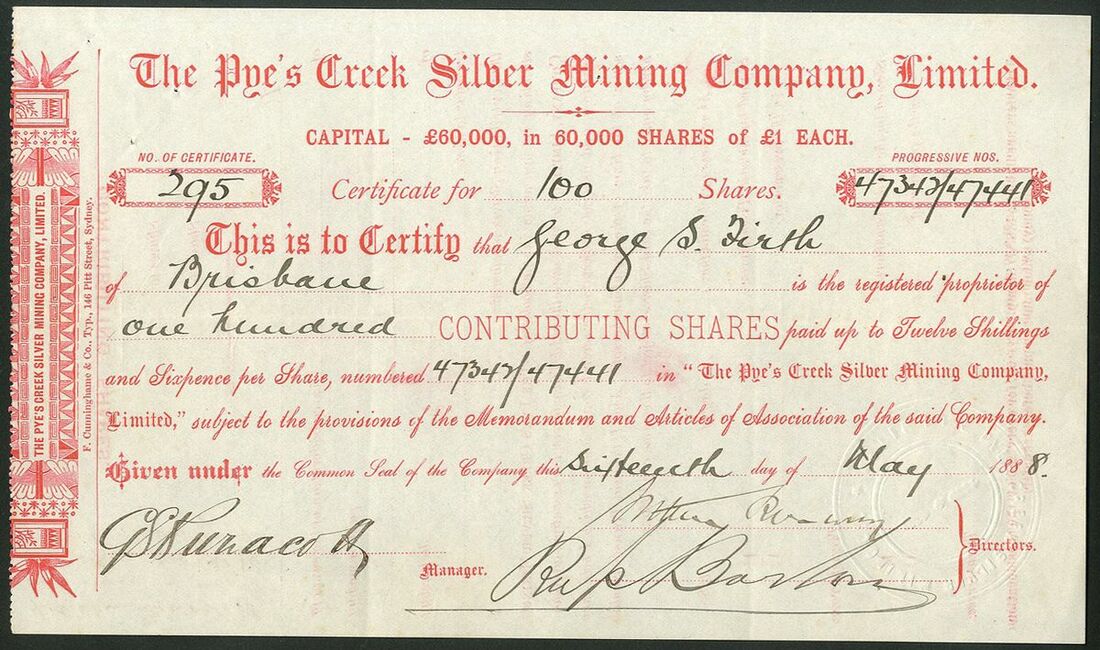 The Pye's Creek Silver Mining Company, Limited.
CAPITAL - £60,000, in 60,000 SHARES of £1 EACH.
NO. OF CERTIFICATE.
PROGRESSIVE NOS.
295
Certificate for 100 Shares.
47342/47441
This is to Certify that George S. Firth
of Brisbane is the registered proprietor of
one hundred CONTRIBUTING SHARES paid up to Twelve Shillings
and Sixpence per Share, numbered 47342/47441 in "The Pye's Creek Silver Mining Company,
Limited," subject to the provisions of the Memorandum and Articles of Association of the said Company.
Given under the Common Seal of the Company this Sixteenth day of May 1888.
Manager.
Directors.
THE PYE'S CREEK SILVER MINING COMPANY, LIMITED.
F. Cunninghame & Co., Typ., 146 Pitt Street, Sydney.